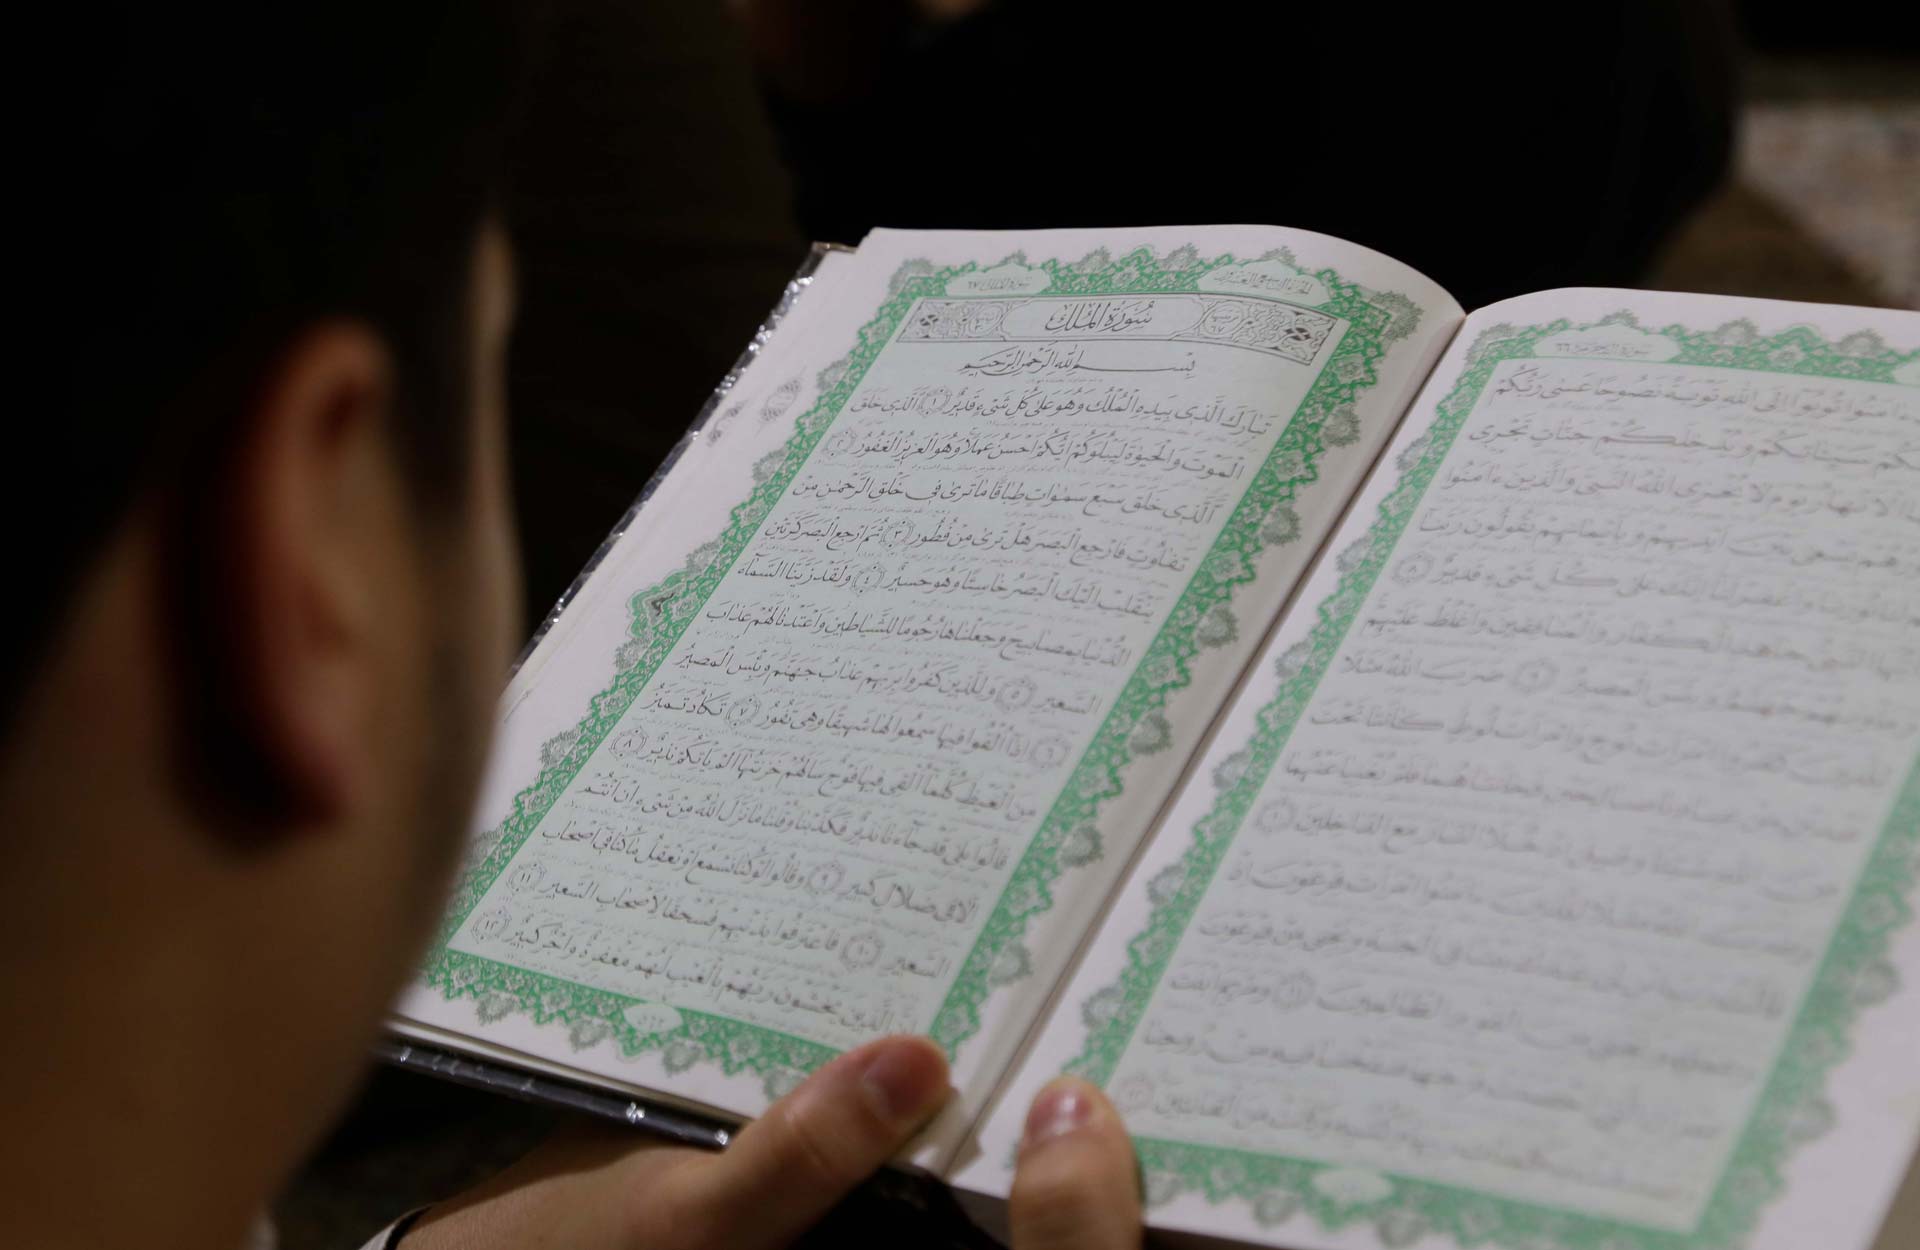 سورة التحريم ٦٦
ءَامَنُوا تُوبُوا إِلَى اللَّهِ تَوْبَةً نَصُوحًا عَسَى رَبُّكُمْ
عَنْكُمْ سَيِّئَاتِكُمْ وَيُدْخِلَكُمْ جَنَّاتٍ تَجْرِى
الْأَنْهَارُ يَوْمَ لَا يُخْزِى اللَّهُ النَّبِىَّ وَالَّذِينَ ءَامَنُوا
نُورُهُمْ يَسْعَى بَيْنَ أَيْدِيهِمْ وَبِأَيْمَانِهِمْ يَقُولُونَ رَبَّنَا
لَنَا نُورَنَا وَاغْفِرْ لَنَا إِنَّكَ عَلَى كُلِّ شَىْءٍ قَدِيرٌ ٨
النَّبِىُّ جَاهِدِ الْكُفَّارَ وَالْمُنَافِقِينَ وَاغْلُظْ عَلَيْهِمْ
وَمَأْوَاهُمْ جَهَنَّمُ وَبِئْسَ الْمَصِيرُ ٩ ضَرَبَ اللَّهُ مَثَلًا
لِلَّذِينَ كَفَرُوا امْرَأَتَ نُوحٍ وَامْرَأَتَ لُوطٍ كَانَتَا تَحْتَ
عَبْدَيْنِ مِنْ عِبَادِنَا صَالِحَيْنِ فَخَانَتَاهُمَا فَلَمْ يُغْنِيَا عَنْهُمَا
مِنَ اللَّهِ شَيْئًا وَقِيلَ ادْخُلَا النَّارَ مَعَ الدَّاخِلِينَ ١٠
وَضَرَبَ اللَّهُ مَثَلًا لِلَّذِينَ ءَامَنُوا امْرَأَتَ فِرْعَوْنَ إِذْ
قَالَتْ رَبِّ ابْنِ لِى عِنْدَكَ بَيْتًا فِى الْجَنَّةِ وَنَجِّنِى مِنْ فِرْعَوْنَ
وَعَمَلِهِ وَنَجِّنِى مِنَ الْقَوْمِ الظَّالِمِينَ ١١ وَمَرْيَمَ ابْنَتَ
أَحْصَنَتْ فَرْجَهَا فَنَفَخْنَا فِيهِ مِنْ رُوحِنَا
وَصَدَّقَتْ بِكَلِمَاتِ رَبِّهَا وَكُتُبِهِ وَكَانَتْ مِنَ الْقَانِتِينَ ١٢
الجزء التاسع والعشرون
سورة الملك ٦٧
سُورَةُ الْمُلْكِ
بِسْمِ اللَّهِ الرَّحْمٰنِ الرَّحِيمِ
تَبَارَكَ الَّذِى بِيَدِهِ الْمُلْكُ وَهُوَ عَلَىٰ كُلِّ شَىْءٍ قَدِيرٌ ١ الَّذِى خَلَقَ
الْمَوْتَ وَالْحَيٰوةَ لِيَبْلُوَكُمْ أَيُّكُمْ أَحْسَنُ عَمَلًا وَهُوَ الْعَزِيزُ الْغَفُورُ ٢
الَّذِى خَلَقَ سَبْعَ سَمٰوَاتٍ طِبَاقًا مَا تَرَىٰ فِى خَلْقِ الرَّحْمٰنِ مِنْ
تَفَاوُتٍ فَارْجِعِ الْبَصَرَ هَلْ تَرَىٰ مِنْ فُطُورٍ ٣ ثُمَّ ارْجِعِ الْبَصَرَ كَرَّتَيْنِ
يَنْقَلِبْ إِلَيْكَ الْبَصَرُ خَاسِئًا وَهُوَ حَسِيرٌ ٤ وَلَقَدْ زَيَّنَّا السَّمَآءَ
الدُّنْيَا بِمَصَابِيحَ وَجَعَلْنَاهَا رُجُومًا لِلشَّيَاطِينِ وَأَعْتَدْنَا لَهُمْ عَذَابَ
السَّعِيرِ ٥ وَلِلَّذِينَ كَفَرُوا بِرَبِّهِمْ عَذَابُ جَهَنَّمَ وَبِئْسَ الْمَصِيرُ
٦ إِذَآ أُلْقُوا فِيهَا سَمِعُوا لَهَا شَهِيقًا وَهِىَ تَفُورُ ٧ تَكَادُ تَمَيَّزُ
مِنَ الْغَيْظِ كُلَّمَآ أُلْقِىَ فِيهَا فَوْجٌ سَأَلَهُمْ خَزَنَتُهَآ أَلَمْ يَأْتِكُمْ نَذِيرٌ ٨
قَالُوا بَلَىٰ قَدْ جَآءَنَا نَذِيرٌ فَكَذَّبْنَا وَقُلْنَا مَا نَزَّلَ اللَّهُ مِنْ شَىْءٍ إِنْ أَنْتُمْ
إِلَّا فِى ضَلَالٍ كَبِيرٍ ٩ وَقَالُوا لَوْ كُنَّا نَسْمَعُ أَوْ نَعْقِلُ مَا كُنَّا فِىٓ أَصْحَابِ
السَّعِيرِ ١٠ فَاعْتَرَفُوا بِذَنْبِهِمْ فَسُحْقًا لِأَصْحَابِ السَّعِيرِ ١١
إِنَّ الَّذِينَ يَخْشَوْنَ رَبَّهُمْ بِالْغَيْبِ لَهُمْ مَغْفِرَةٌ وَأَجْرٌ كَبِيرٌ ١٢